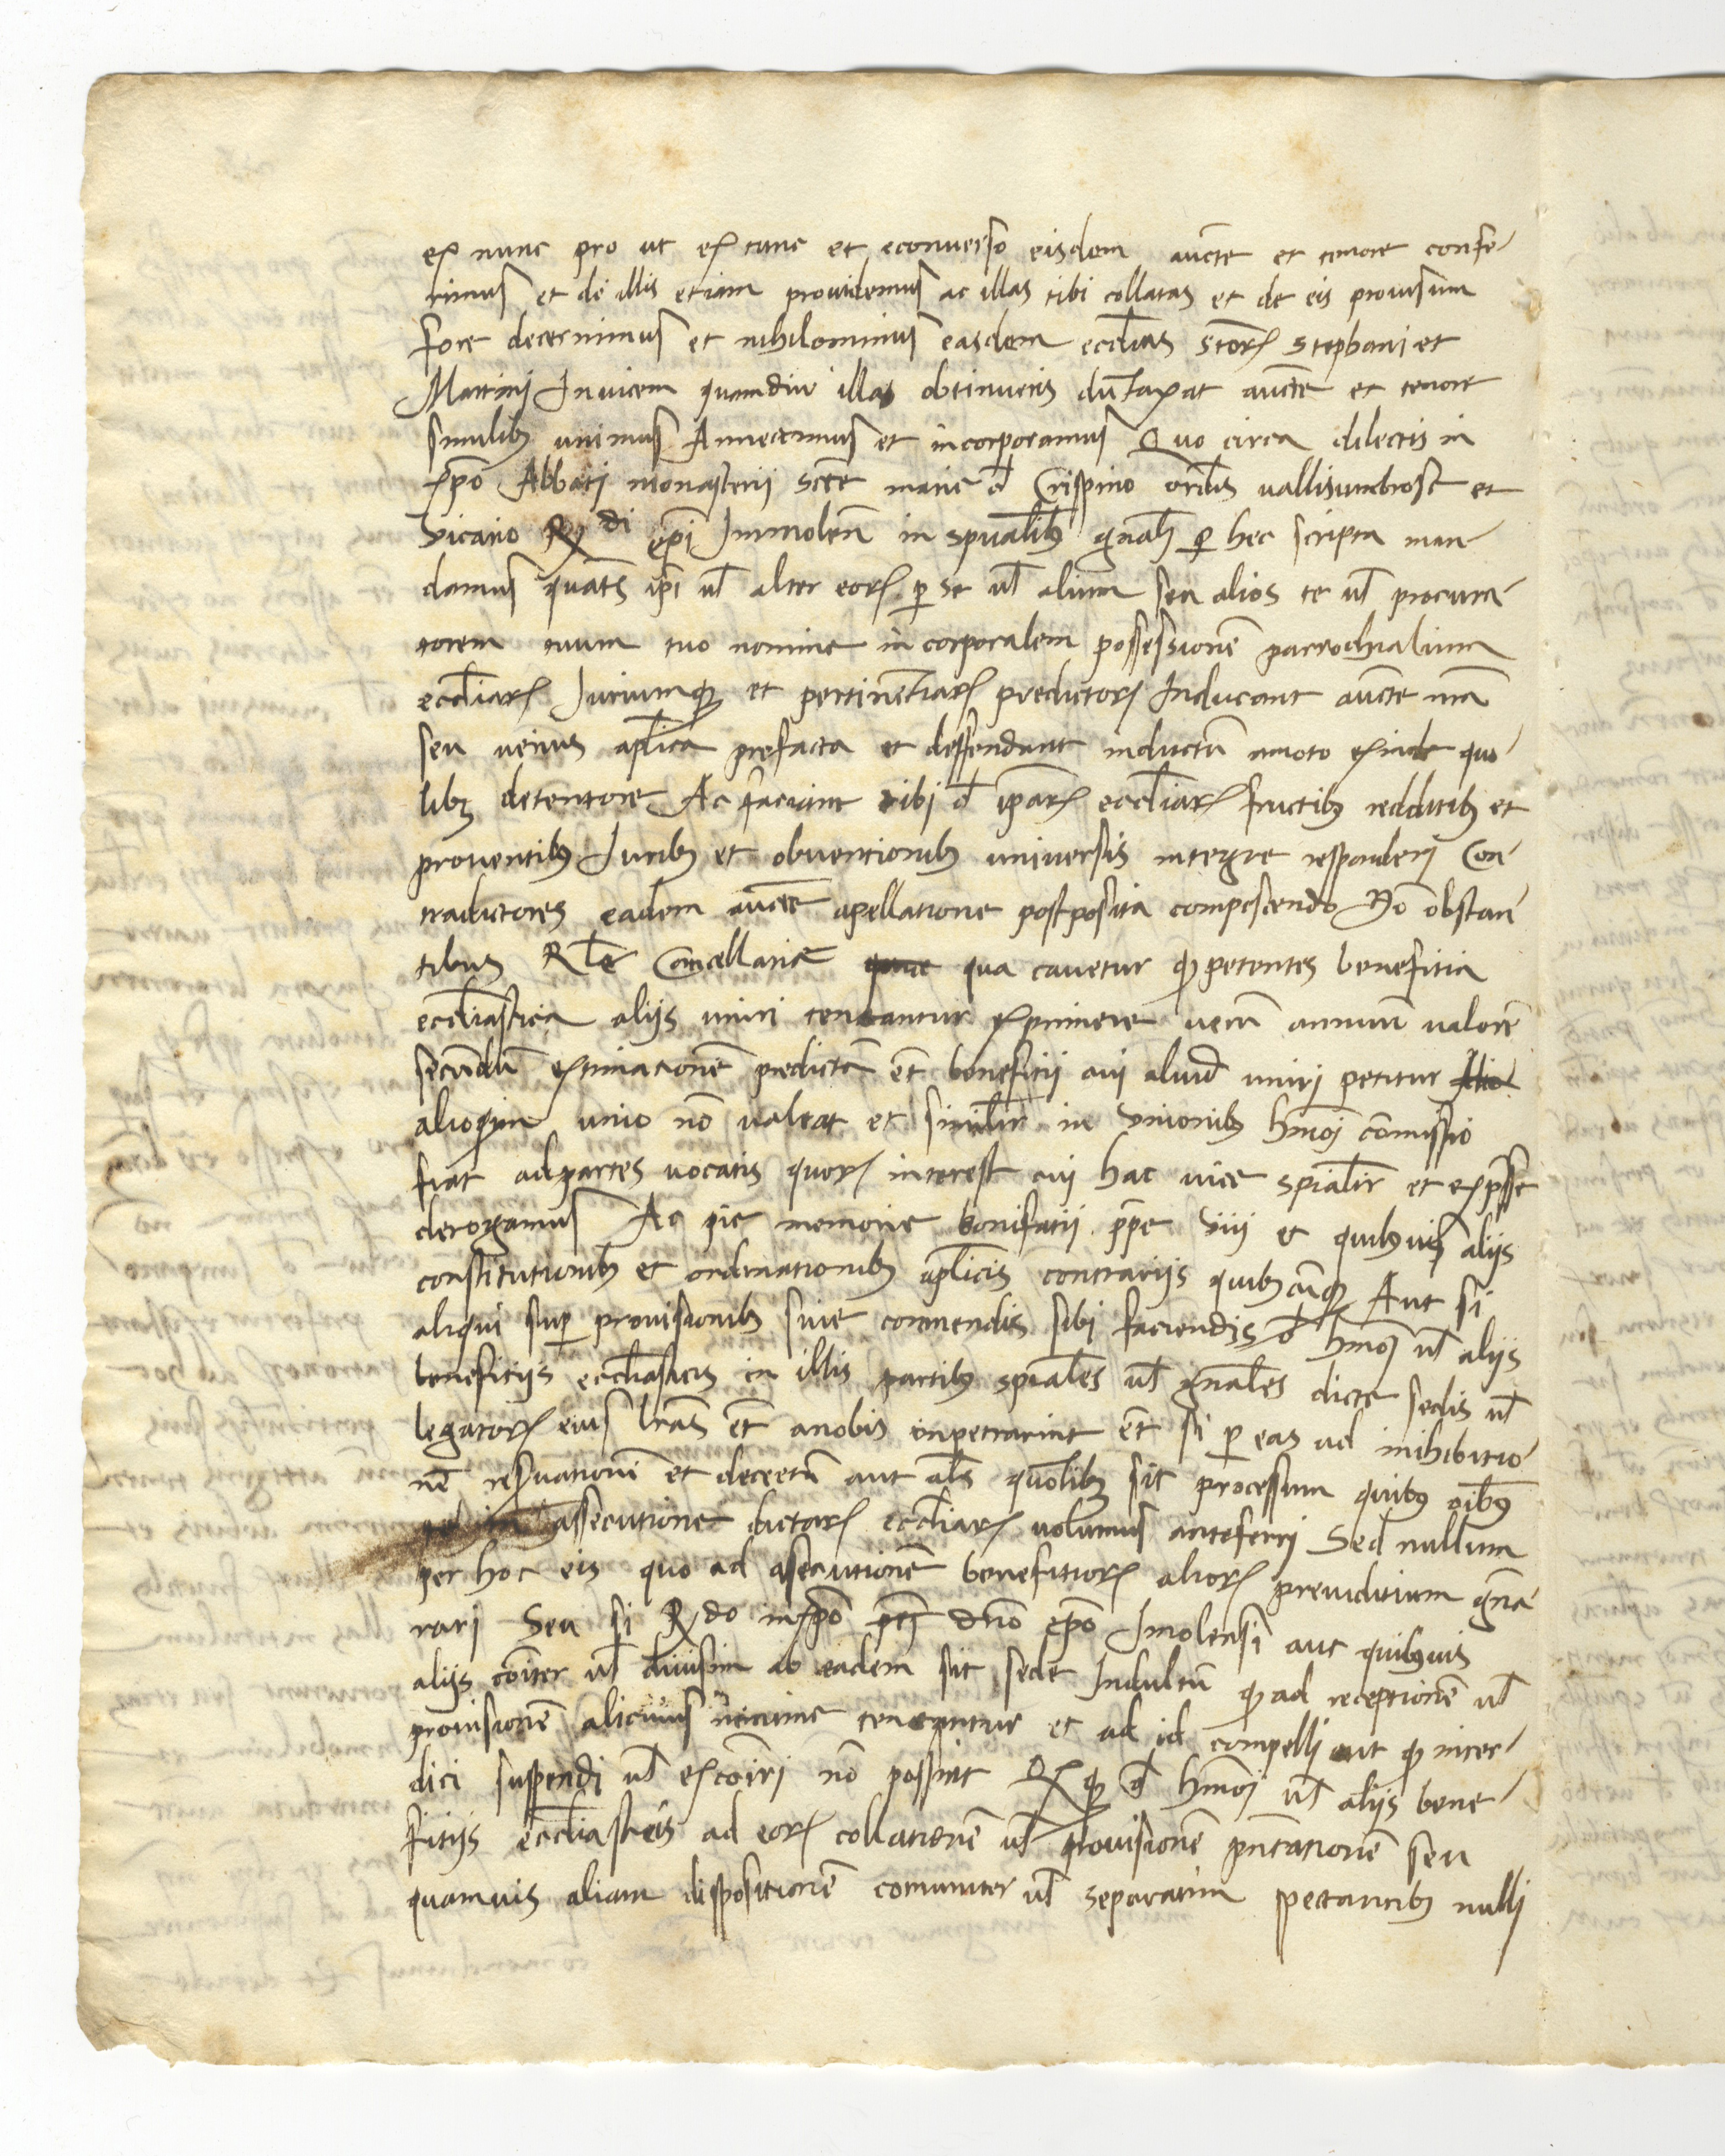 ex nunc pro ut ex tunc et econuerso eisdem aucte et tenore confe-
rimus et de illis etiam prouidemus ac illas tibi collatas et de eis prouisum
fore decernimus et nihilominus easdem ecclias sctoꝝ stephani et
Martinj Inuicem quamdiu illas obtinueris dūtaxat aucte et tenore
similibꝫ unimus Annectimus et incorporamus Quo circa dilectis in
xpo Abbatj monasterii scte marie d Crispino ordis uallisumbrose et
Vicario Rdi epi Immolen in spualibꝫ gnalj ꝑ hec scripta man
damus quatns ipi ul alter eoꝝ ꝑ se ul alium seu alios te ul procura-
torem tuum tuo nomine in corporalem possessionē parrochialium
eccliaꝝ Juriumqꝫ et pertinentiaꝝ predictoꝝ Inducant aucte nrā
seu uerius aplica prefacta et deffendant inductū amoto exinde quo-
libꝫ detentore Ac faciant tibi d ipaꝝ eccliaꝝ fructibꝫ redditibꝫ et
prouentibꝫ Juribꝫ et obuentionibꝫ uniuersis integre responderj Con-
tradictores eadem aucte apellatione postposita compescendo Nō obstan
tibus Rle Cancellarie qua cauetur qꝫ petentes benefitia
eccliastica aliis uniri teneantur exprimere uerū annuum ualorē
secundū extimationē predictā et benefitii cui aliud uniri petitur
alioquin unio nō ualeat et similir in Unionibꝫ hmoj comissio
fiat ad partes uocatis quoꝝ interest cui hac uice spialir et expsse
derogamus Ac pie memorie bonifatii ppe Viij et quibusuis aliis
constitutionibꝫ et ordinationibꝫ aplicis contrariis quibꝫcūqꝫ Aut si
aliqui suꝑ prouisionibꝫ siue comendis sibi faciendis d hmoj ul aliis
benefitiis eccliasticis in illis partibꝫ spiales ul gnales dicte sedis ul
legatoꝝ eius lras et anobis inpetrarint et si ꝑ eas ad inihibitio-
nē reseruationē et decretū aut als quolibꝫ sit processum quibus oibꝫ
assecutione dictaꝝ eccliaꝝ uolumus anteferri Sed nullum
per hoc eis quo ad asecutionē benefitioꝝ alioꝝ preiuditium gna
rarj Seu si Rdo inxpo pri dno epo Imolensi aut quibusuis
aliis coiter ul diuisim ab eadem sit sede Indultū qꝫ ad receptionē ul
prouisionē alicuius minime teneantur et ad id compelli aut qꝫ inter-
dici suspendi ul excoiri nō possint qꝫ d hmoj ul aliis bene-
fitiis eccliasticis ad eoꝝ collationē ul prouisionē pntationē seu
quamuis aliam dispositionē comuniter ul separatim spectantibꝫ nulli